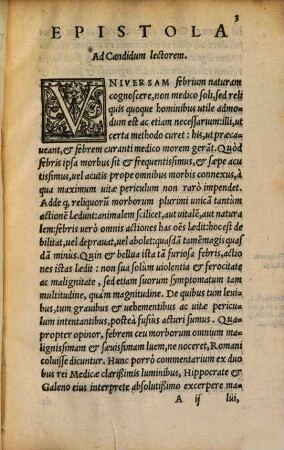 3
EPISTOLA
Ad Candidum lectorem.
VNIVERSAM febrium naturam
cognoscere, non medico soli, sed reli
quis quoque hominibus utile admo
dum est ac etiam necessarium: illi, ut
certa methodo curet: his, ut præca-
ueant, & febrem curanti medico morem gerāt. Quòd
febris ipsa morbus sit & frequentissimus, & sæpe acu
tissimus, uel acutis prope omnibus morbis connexus, à
qua maximum uitæ periculum non rarò impendet.
Adde q, reliquorū morborum plurimi unicā tantum
actionē Lædunt: animalem scilicet, aut uitalē, aut natura
lem: febris uerò omnis actiones has oēs Lædit: hoc est de
bilitat, uel deprauat, uel abolet: quasdā tamē magis quas
dā minus. Quin & bellua ista tā furiosa febris, actio
nes istas Lædit: non sua sol$um uiolentia & ferocitate
ac malignitate, sed etiam suorum symptomatum tam
multitudine, quàm magnitudine. De quibus tum leui-
bus, tum grauibus & uehementibus ac uitæ pericu-
lum intentantibus, posteà fusius acturi sumus. Qua
propter opinor, febrem ceu morborum omnium ma-
lignissimam & sæuissimam luem, ne noceret, Romani
coluisse dicuntur. Hunc porrò commentarium ex duo
bus rei Medicæ clarissimis luminibus, Hippocrate &
Galeno eius interprete absolutissimo excerpere ma-
A ij lui,